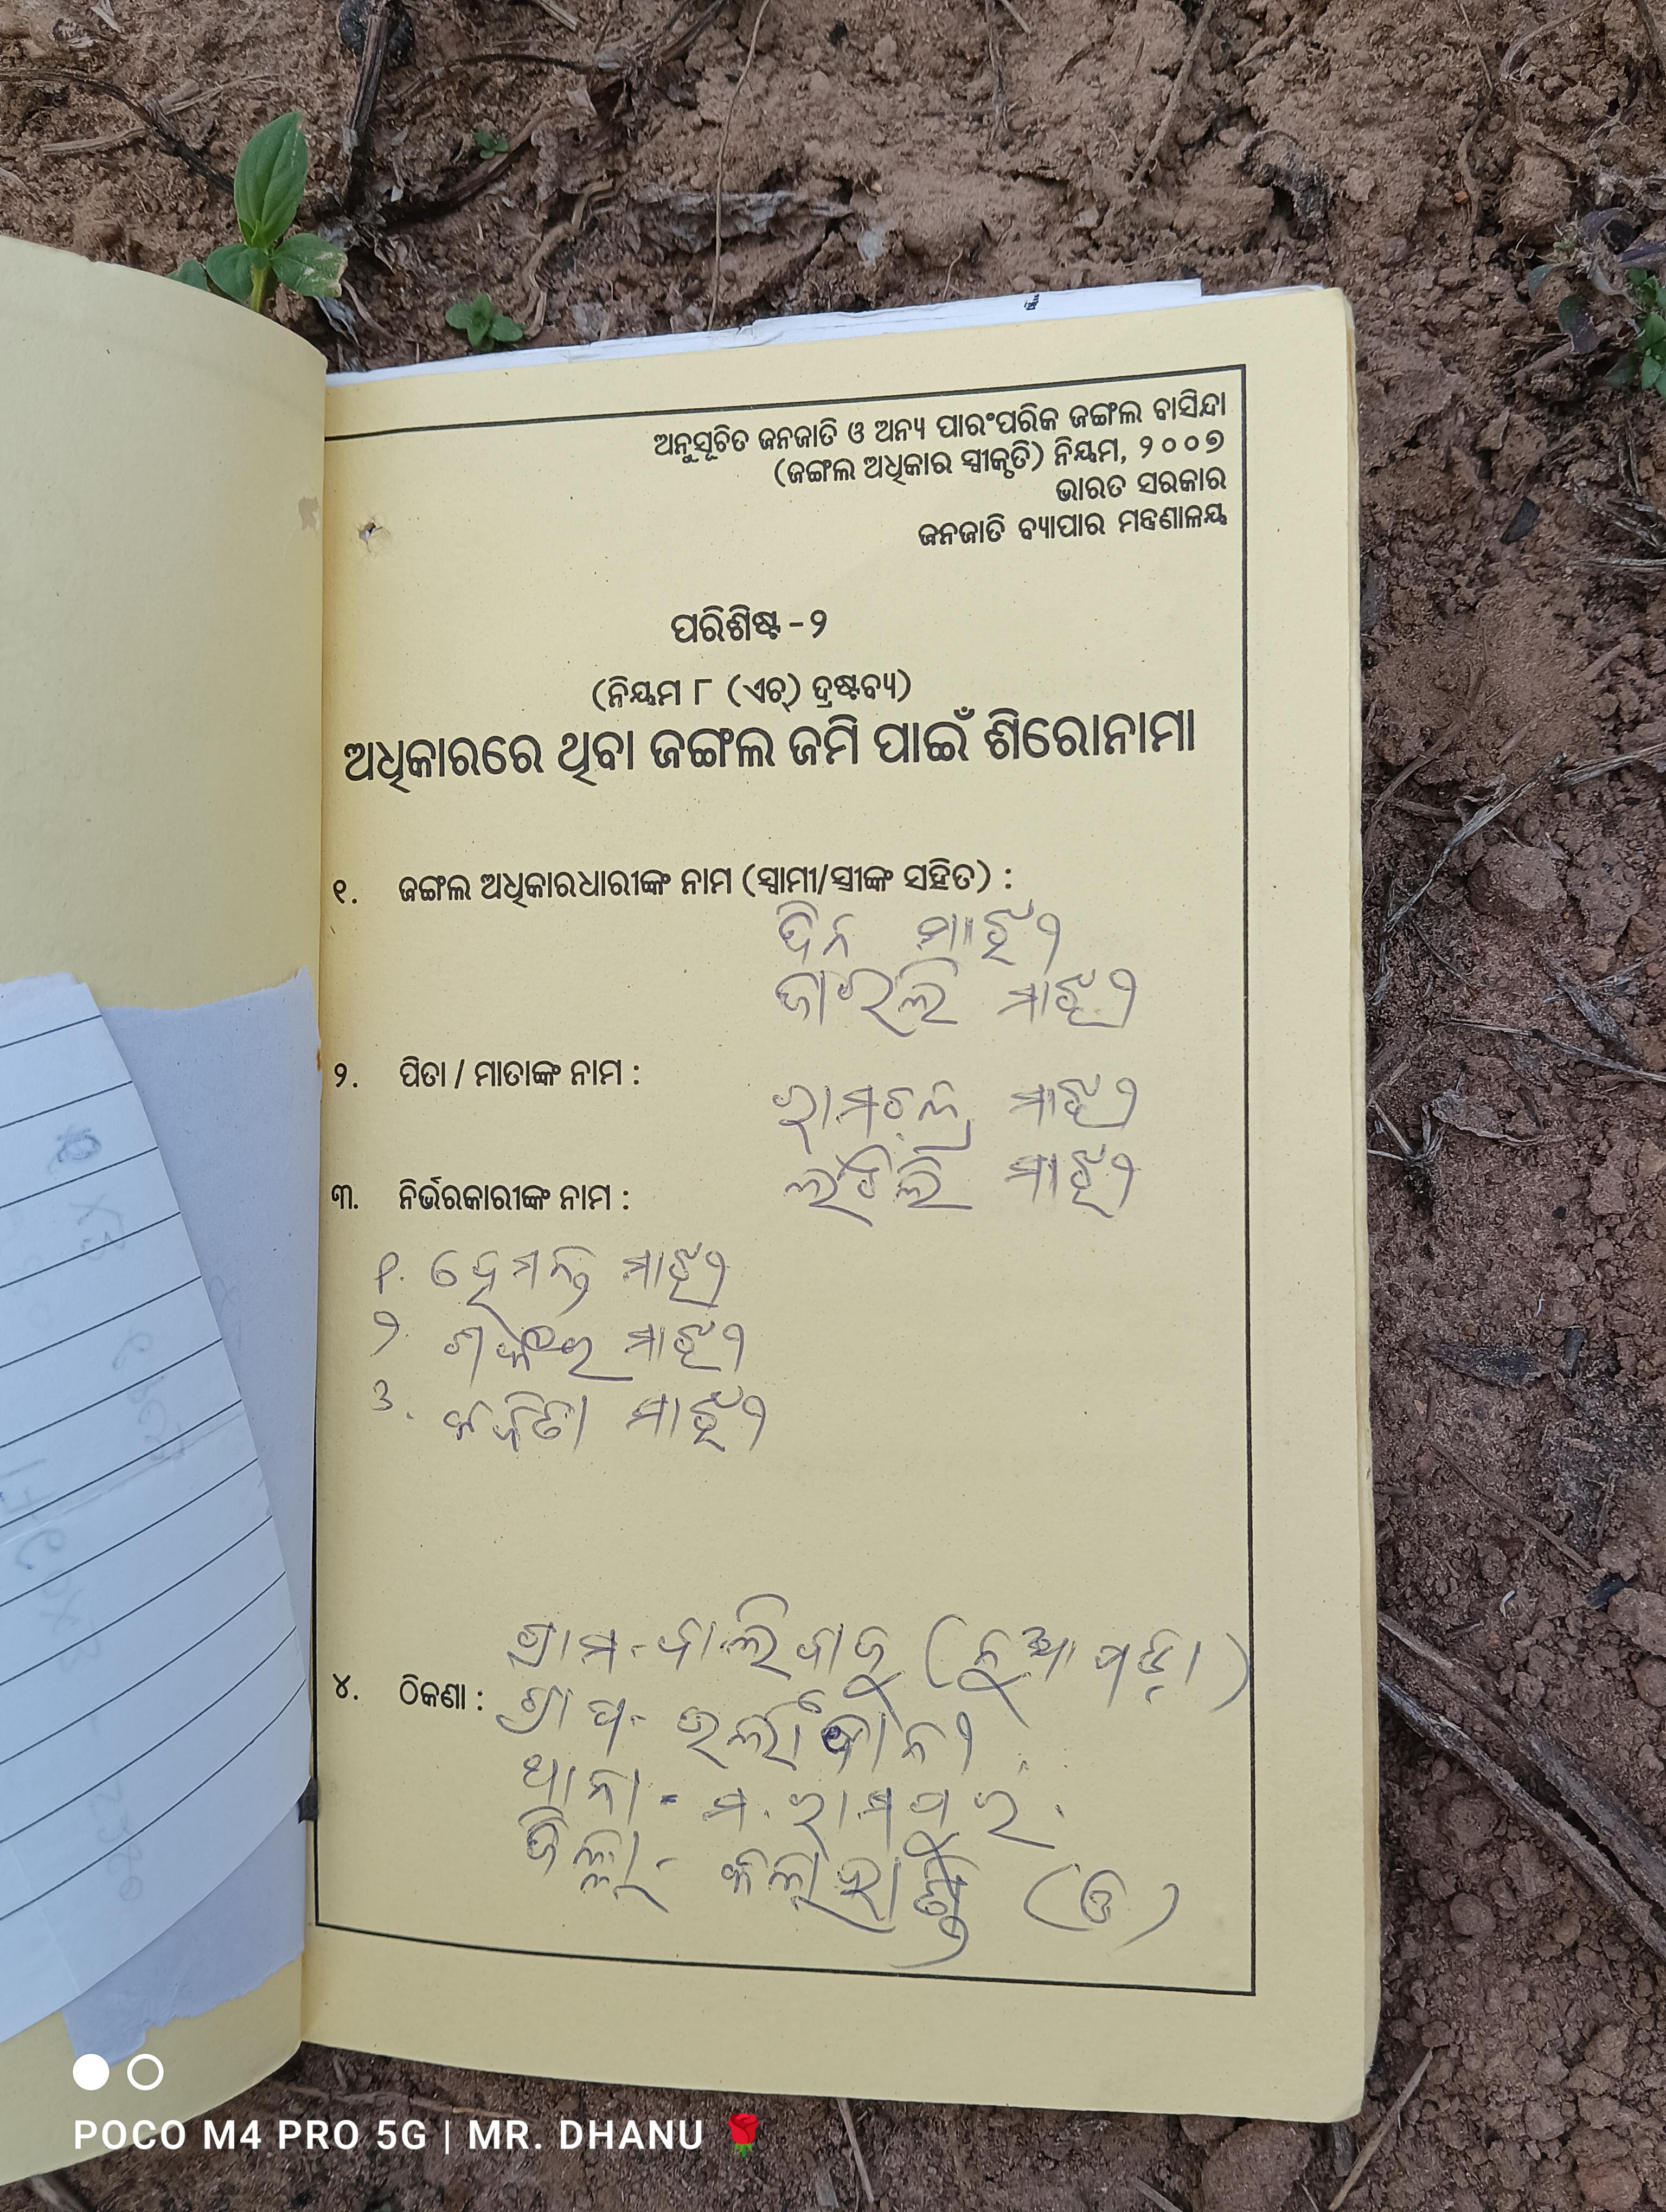 ଅନୁସୂଚିତ ଜନଜାତି ଓ ଅନ୍ୟ ପାରଂପରିକ ଜଙ୍ଗଲ ବାସିନ୍ଦା
(ଜଙ୍ଗଲ ଅଧିକାର ସ୍ୱୀକୃତି) ନିୟମ, ୨୦୦୭
ଭାରତ ସରକାର
ଜନଜାତି ବ୍ୟାପାର ମନ୍ତ୍ରଣାଳୟ
ପରିଶିଷ୍ଟ - ୨
(ନିୟମ ୮ (ଏଚ୍) ଦ୍ରଷ୍ଟବ୍ୟ)
ଅଧିକାରରେ ଥିବା ଜଙ୍ଗଲ ଜମି ପାଇଁ ଶିରୋନାମା
୧. ଜଙ୍ଗଲ ଅଧିକାରଧାରୀଙ୍କ ନାମ (ସ୍ୱାମୀ/ସ୍ତ୍ରୀଙ୍କ ସହିତ) :
ଦିନ ମାଝୀ
ମାଝୀ
୨. ପିତା / ମାତାଙ୍କ ନାମ :
ମାଝୀ
ମାଝୀ
୩. ନିର୍ଭରକାରୀଙ୍କ ନାମ :
୧. ହେମନ୍ତ ମାଝୀ
୨. ମାଝୀ
୩. କବିତା ମାଝୀ
ଗ୍ରାମ - (ନୁଆପଡ଼ା)
୪. ଠିକଣା :
ଗ୍ରାପ -
ଥାନା - ମ. ରାମପୁର
ଜିଲ୍ଲା - କଳାହାଣ୍ଡି (ଓ)
POCO M4 PRO 5G | MR. DHANU 🌹